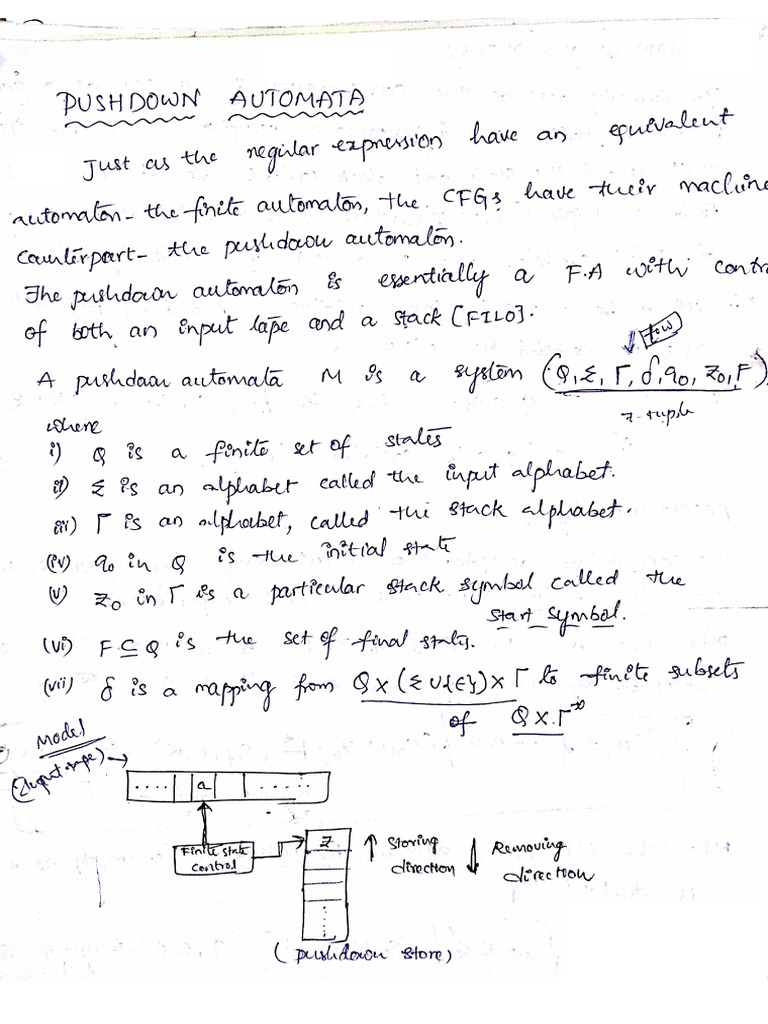 PUSHDOWN AUTOMATA
Just as the regular expression have an equivalent
automaton - the finite automaton, the CFGs have their machine
counterpart - the pushdown automaton.
The pushdown automaton is essentially a F.A with contr
of both an input tape and a stack [FILO].
A pushdown automata M is a system (Q, Σ, Γ, δ, q0, Z0, F)
7-tuple
where
i) Q is a finite set of states
ii) Σ is an alphabet called the input alphabet.
iii) Γ is an alphabet, called the stack alphabet.
(iv) q0 in Q is the initial state
(v) Z0 in Γ is a particular stack symbol called the
start symbol.
(vi) F ⊆ Q is the set of final states.
(vii) δ is a mapping from Q × (Σ ∪ {ϵ}) × Γ to finite subsets
of Q × Γ*
Model
(Input tape) →
.... a .....
Finite state
control
Z
↑ Storing
direction
↓ Removing
direction
(pushdown store)